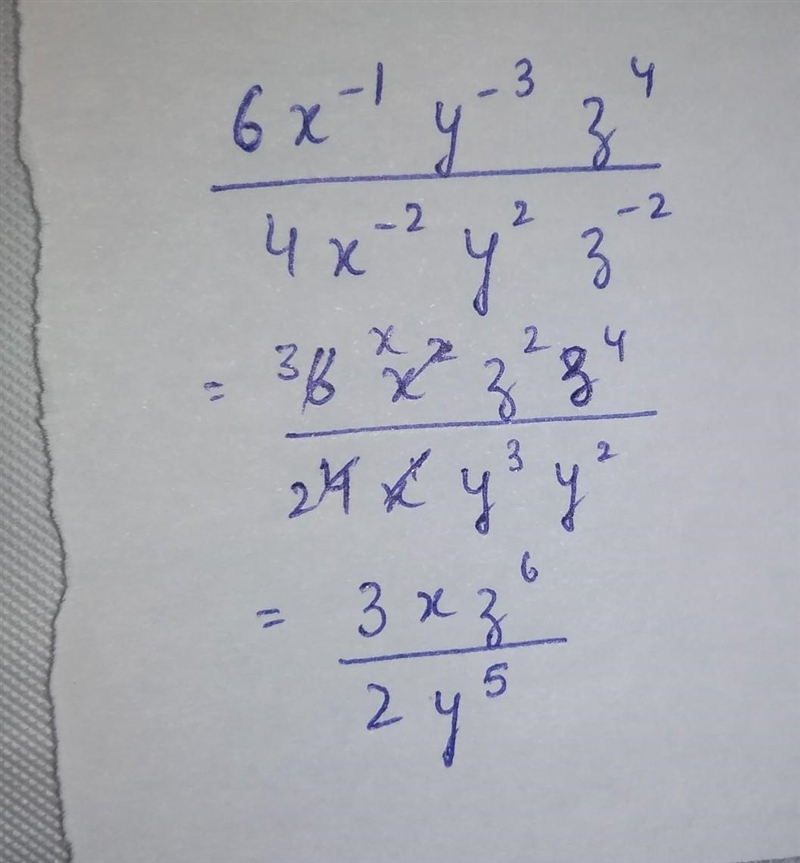 6x⁻¹ y⁻³ z⁴
4x⁻² y² z⁻²
= 36 x x² z² z⁴
24 x y³ y²
= 3 x z⁶
2 y⁵